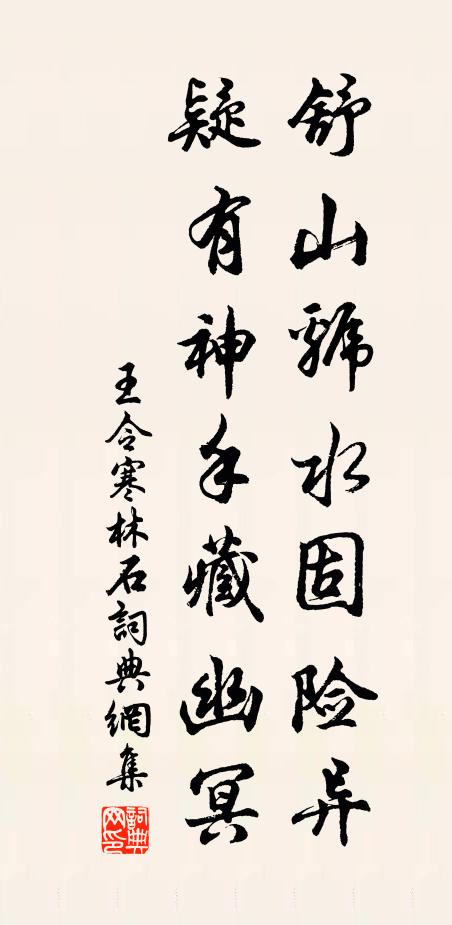 舒山虢水固险异
疑有神手藏幽冥
王令寒林石詞典網集
詞典
网印